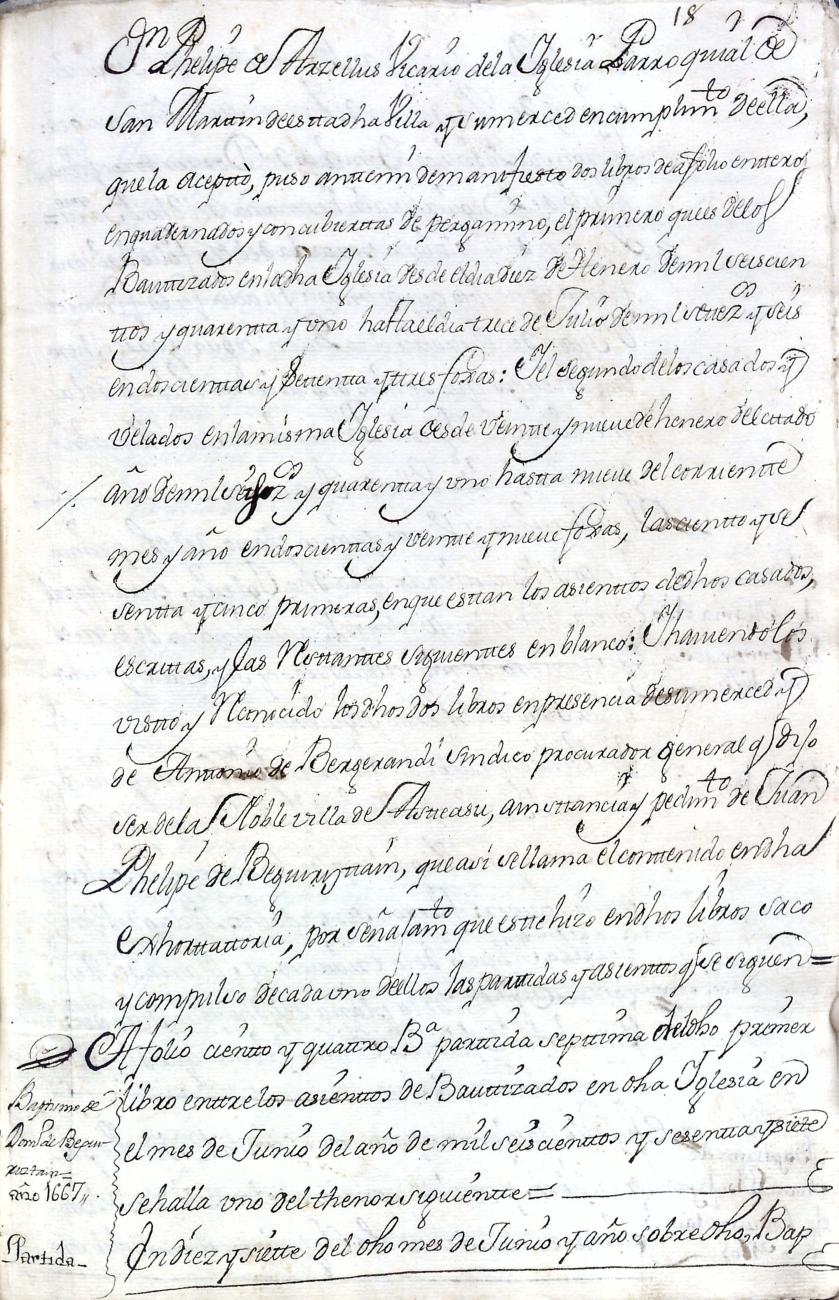 18
Dn Phelipe de Arzellus Vicario dela Iglesia Parroquial de
San Martin deesttadha Villa y su merced encumplimto deella,
quela aceptò, puso anttemi demanifiesto dos libros deafolio entteros
enquadernados y concubierttas de pergamino, el primero quees delos
Bauttizados enladha Iglesia desde eldia diez de Henero demil seiscien
ttos y quarentta y uno hastaeldia trece de Julio demil settezos y seis
endoscienttas y settentta y ttres foxas: Y el segundo delos casados y
velados enlamisma Iglesia desde veintte y nueve de henero del cittado
año demil seiszos y quarentta y uno hastta nueve del corrientte
mes y año endoscienttas y veintte y nueve foxas, las cientto y se
sentta y cinco primeras, enque esttan los asienttos dedhos casados,
escrittas, y las Resttanttes siguienttes en blanco: Y haviendolos
visto y Reconocido losdhos dos libros enpresencia desumerced y
de Antonio de Bergerandi sindico procurador general q dijo
ser dela Noble villa de Astteasu, ainsttancia y pedimto de Juan
Phelipe de Beguiristtain, queasi sellama el conttenido endha
exhorttattoria, por señalamto que estte hizo endhos libros saco
y compulso decada uno deellos las parttidas y asienttos q se siguen=
A folio cientto y quattro Ba parttida septtima deldho primer
libro enttre los asienttos de Bauttizados en dha Iglesia en
el mes de Junio del año de mil seiscienttos y sesentta y siete
sehalla uno del thenor siguientte=
En diez y siette del dho mes de Junio y año sobredho, Bap
Baptismo de
Domo de Begui
riztain=
año 1667,,
Partida